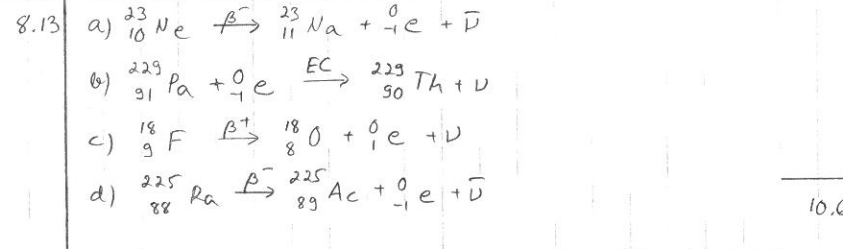 8.13 a) ²³₁₀Ne β⁻→ ²³₁₁Na + ⁰₋₁e + ν̄
b) ²²⁹₉₁Pa + ⁰₋₁e EC→ ²²⁹₉₀Th + ν
c) ¹⁸₉F β⁺→ ¹⁸₈O + ⁰₁e + ν
d) ²²⁵₈₈Ra β⁻→ ²²⁵₈₉Ac + ⁰₋₁e + ν̄